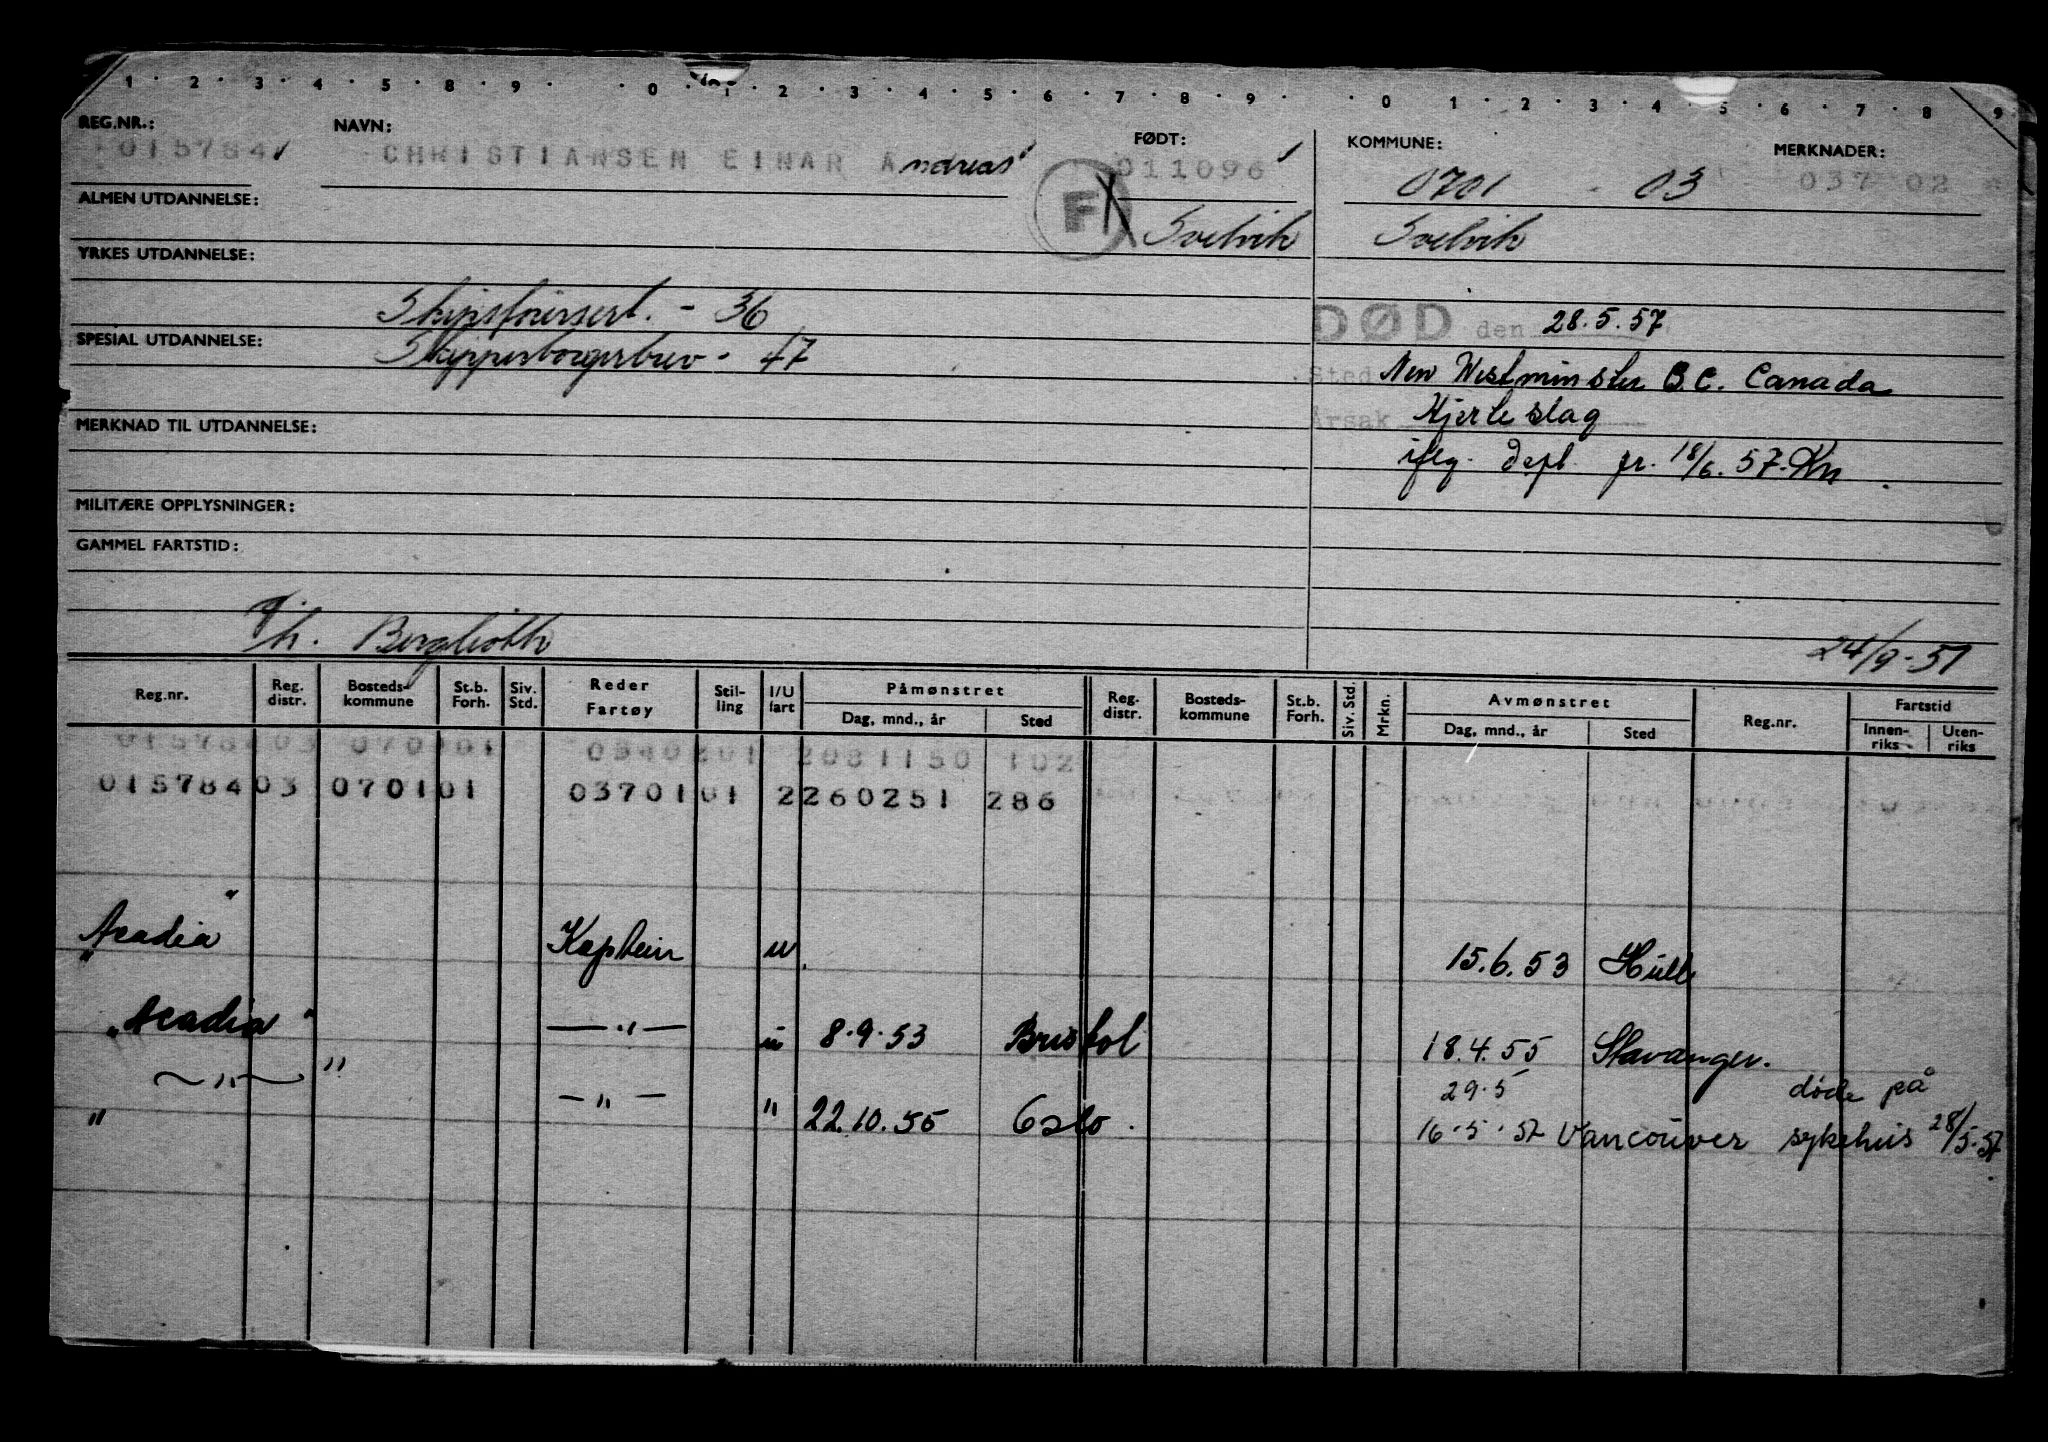 1 · 2 · 3 · 4 · 5 · 8 · 9 · · 0 · 1 · 2 · 3 · 4 · 5 · 6 · 7 · 8 · 9 · · 0 · 1 · 2 · 3 · 4 · 5 · 6 · 7 · 8 · 9
REG.NR.: NAVN: FØDT: KOMMUNE: MERKNADER:
015784 CHRISTIANSEN EINAR Andreas 011096 0701 - 03 037 02
F
ALMEN UTDANNELSE: Svelvik Svelvik
YRKES UTDANNELSE:
Skipsførersert. - 36 DØD den 28.5.57
SPESIAL UTDANNELSE: Skipperborgerbrev - 47
Sted New Westminster B.C. Canada
Årsak Hjerteslag
MERKNAD TIL UTDANNELSE:
iflg. Depl. fr. 18/6. 57. Kn
MILITÆRE OPPLYSNINGER:
GAMMEL FARTSTID:
h. Berglioth 24/9-51
Reg.nr. Reg. distr. Bosteds- kommune St.b. Forh. Siv. Std. Reder Fartøy Stil- ling I/U fart Påmønstret Dag, mnd., år Sted Reg. distr. Bosteds- kommune St.b. Forh. Siv. Std. Mrkn. Avmønstret Dag, mnd., år Sted Reg.nr. Fartstid Innen- riks Uten- riks
015784 03 0701 01 0340201 2081150 102
015784 03 0701 01 03701 01 2260251 286
"Acadia" Kaptein u 15.6.53 Hull
"Acadia" — " — u 8.9.53 Bristol 18.4.55 Stavanger.
29.5 døde på
— " — " — " — " 22.10.55 Oslo. 16.5.57 Vancouver sykehus 28/5.57
"